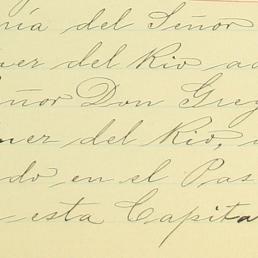 nía del Señor
ner del Rio ac
eñor Don Greg
ner del Rio,
do en el Pas
esta Capita